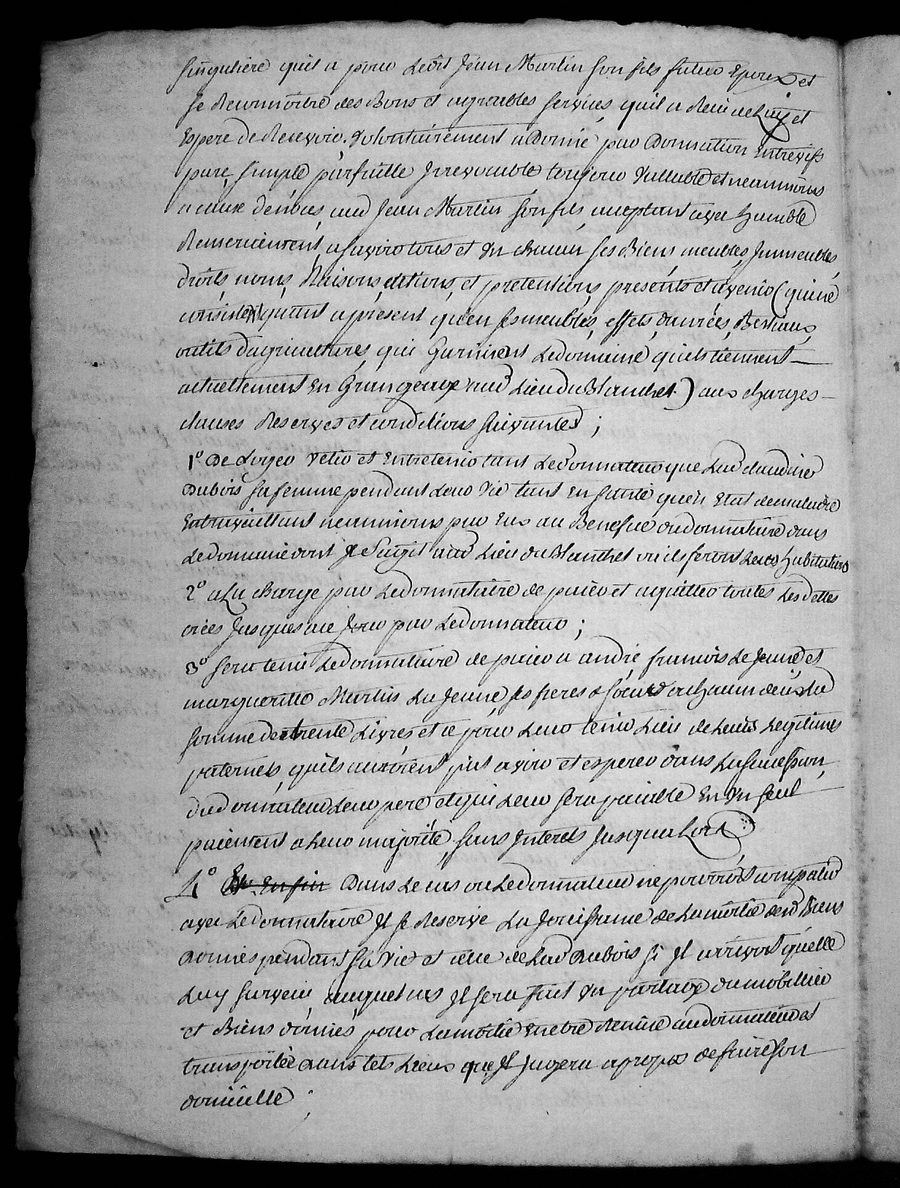 singuliere quil a pour Ledit Jean Martin son fils futur Epoux et
se Reconnoitre des Bons et agreables services quil a Recu de Luy et
Espere de Recevoir. volontairement a Donné par Donnation Entrevifs
pure, simple, parfaitte Irrevocable toujour vallable et neanmoins
a cause de nôces aud Jean Martin son fils acceptant avec humble
Remerciement, a savoir tous et un chacun ses Biens meubles, Immeubles,
droits, noms, Raisons, actions, et pretentions, presents et avenir (qui ne
consistent quant a present, qu'en ses meubles, effets, danrées, Bestiaux,
outils d'agriculture, qui Garnissent Le domaine, qu'ils tiennent
actuellement En Grangeage aud Lieu du Blanchet) aux charges
clauses Reserves et conditions suivantes;
1° De Loger vetir et Entretenir tant Le donnateur que Lad claudine
Dubois sa femme pendant Leur vie tant En santé qu'en Etat de maladie
En travaillant neanmoins par Eux au Benefice du donnataire dans
Le domaine dont Il S'agit aud Lieu du Blanchet ou ils feront Leurs habitations
2° a La charge par Le donnataire de paier et aquitter toutes Les dettes
crées Jusques a ce Jour par Le donnateur;
3° sera tenu Le donnataire de paier a andré, francois Le Jeune et
margueritte Martin La Jeune, ses freres & soeur a chacun deux La
somme de trente Livres et ce pour Leur tenir Lieu de Leurs Legitimes
paternels, quils auroient put avoir et esperer dans La succession
du donnateur Leur pere et qui Leur sera païable En un seul
paiement a Leur majorité, sans Interets Jusqu'a Lors
4° Et Enfin Dans Le cas ou Le donnateur ne pourroit compatir
avec Le donnataire Il se Reserve La Jouissance de La moitié desd Biens
Donnés pendant sa vie et celle de Lad Dubois si Il arrivoit quelle
Luy survecu auquel cas Il sera fait un partage du mobillier
et Biens donnés pour La moitié en etre delivré au donnateur et
transportée dans tels Lieux qu'Il Jugera apropos de faire son
domicille;